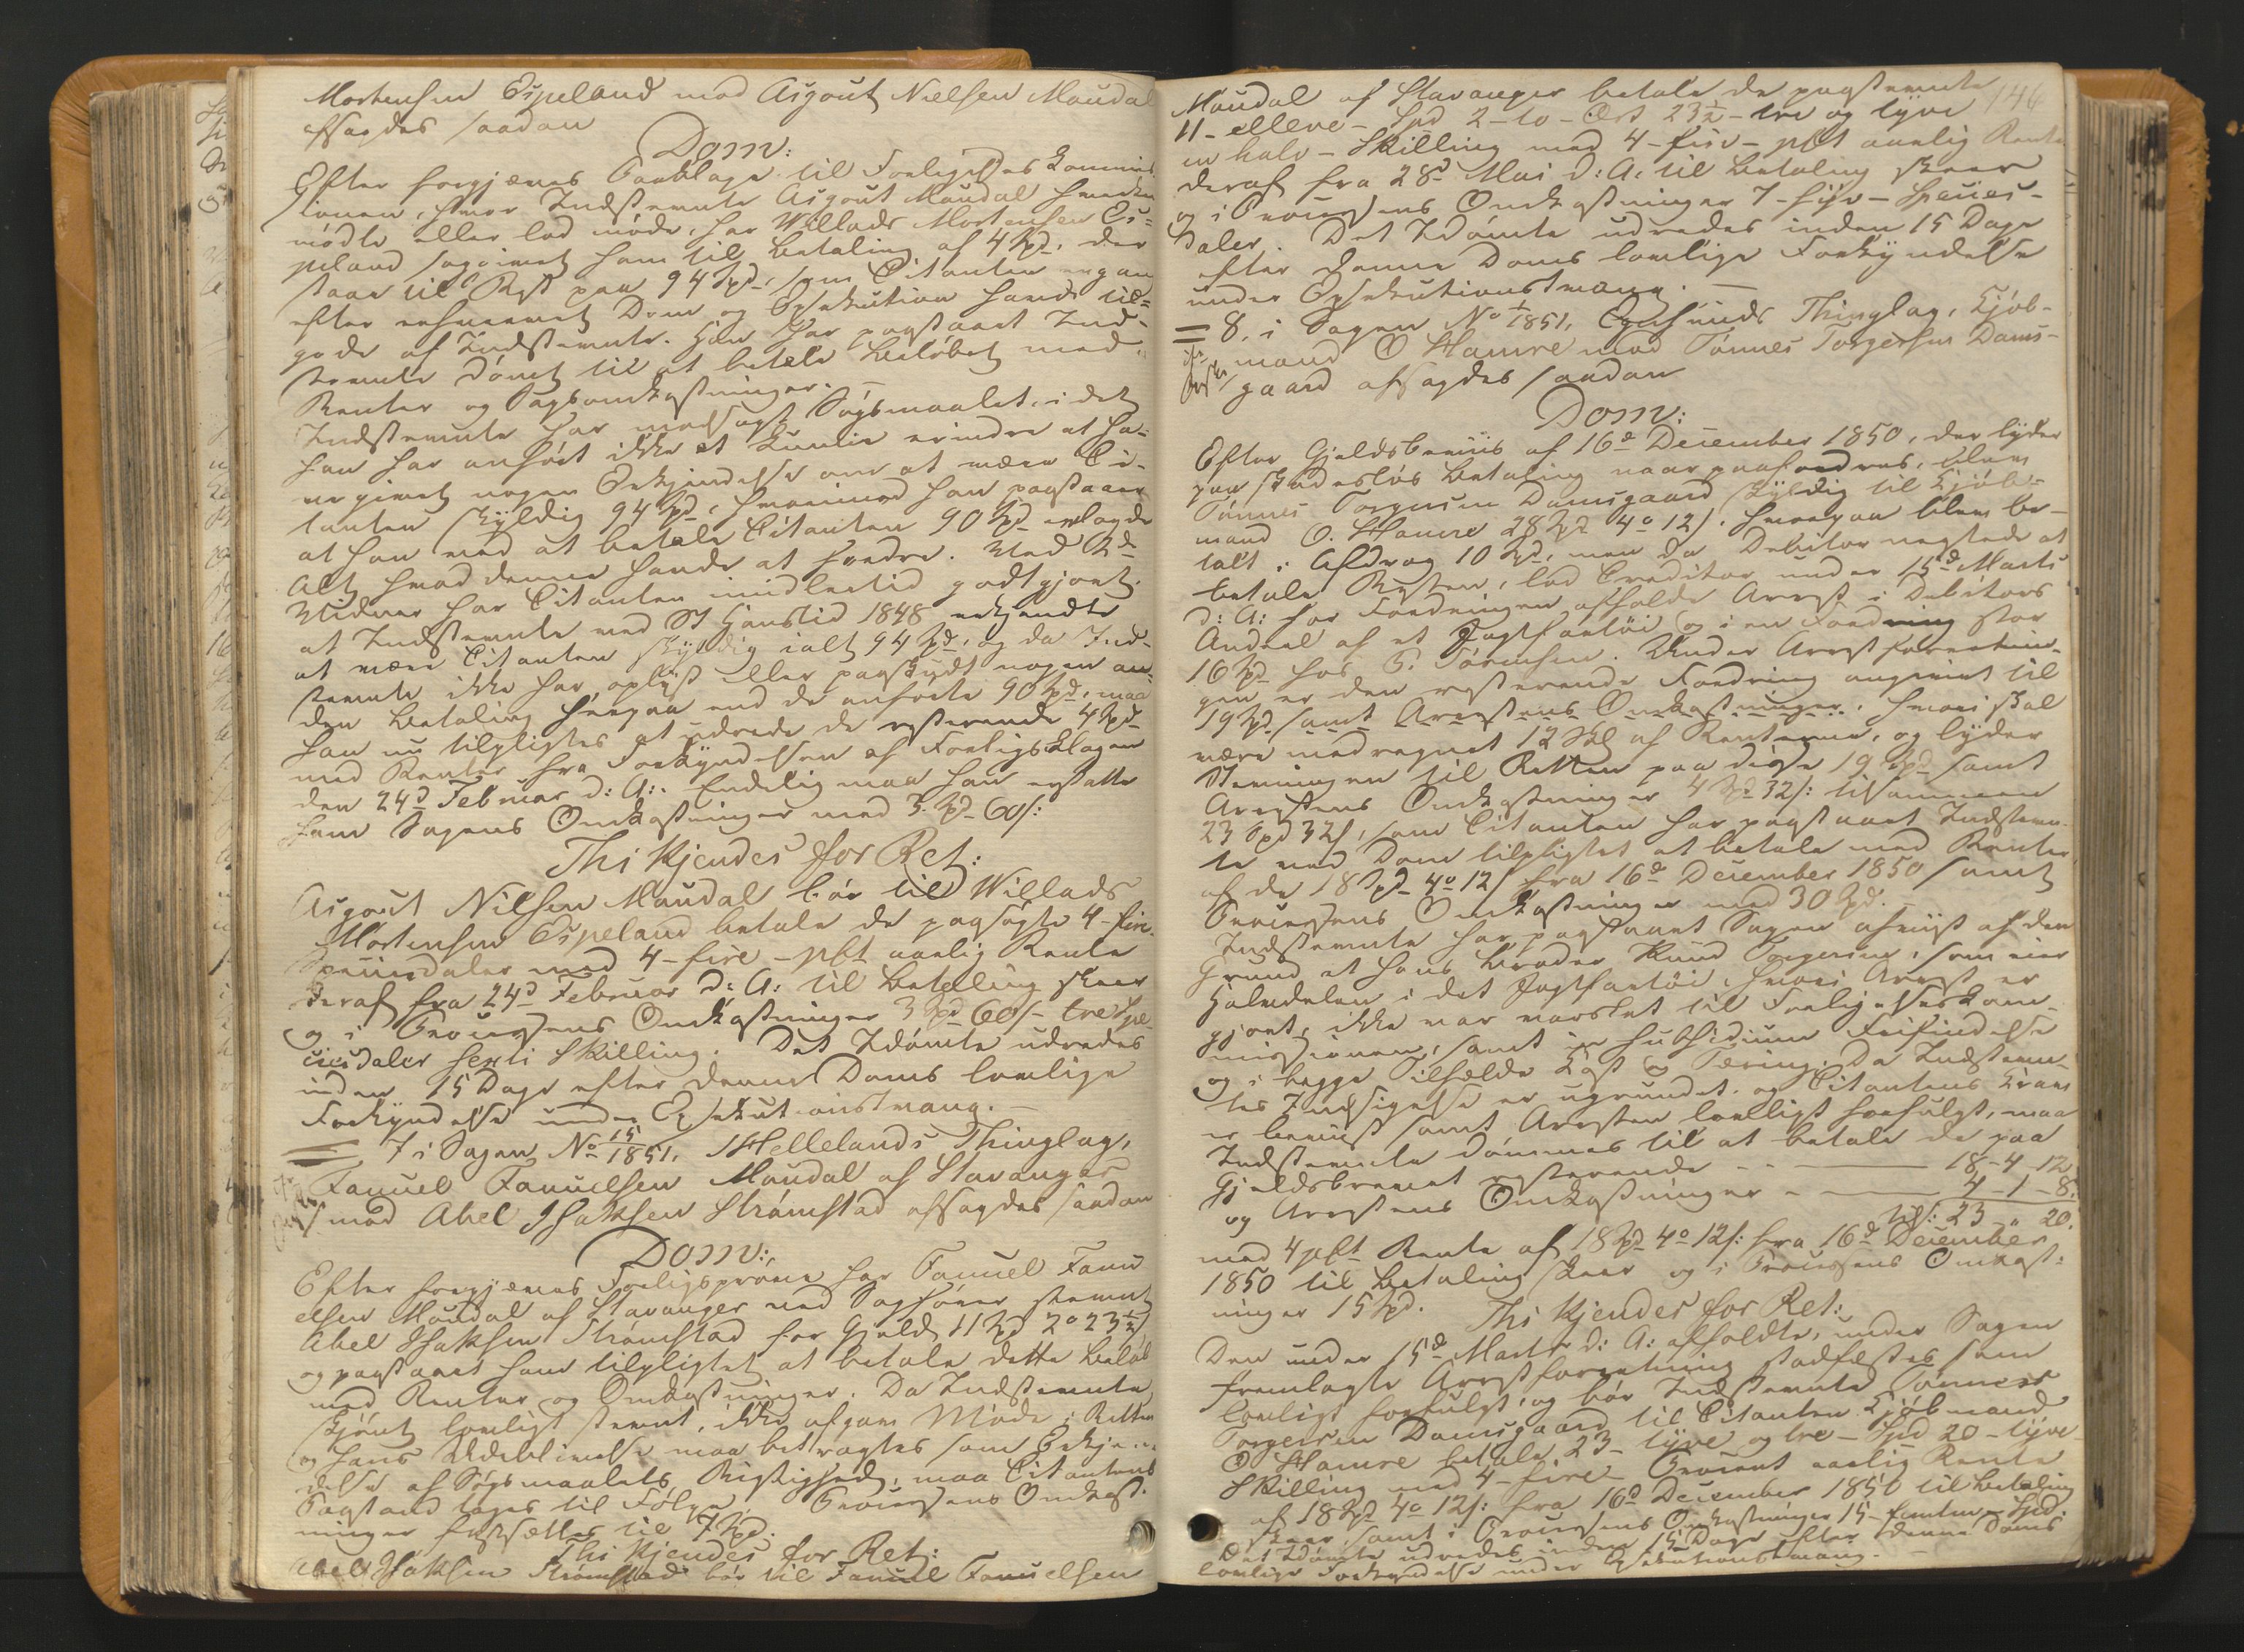 Mortensen Espeland mod Asgout Nielsen Maudal
afsagdes saadan
Dom:
Efter forgjæves Paaklage til Forligelses Commis
sionen, hvor Indstevnte Asgout Maudal hverken
mødte eller lod møde, har Willads Mortensen Es=
peland sagsøgt ham til Betaling af 4 Spd, der
staar til Rest paa 94 Spd, som Citanten
efter erhvervet Dom og Exekution havde til=
gode af Indstevnte. Han har paastaaet Ind=
stevnte dømt til at betale Beløbet med
Renter og Sagsomkostninger. —
Indstevnte har modsagt Søgsmaalet, idet
han har anført ikke at kunne erindre at ha=
ve givet nogen Erkjendelse om at være Ci=
tanten skyldig 94 Spd, hvorimod han paastaaer
at han ved at betale Citanten 90 Spd erlagde
Alt hvad denne havde at fordre. Med 2de
Vidner har Citanten imidlertid godtgjort,
at Indstevnte ved St Hanstid 1848 erkjendte
at være Citanten skyldig ialt 94 Spd, og da Ind=
stevnte ikke har oplyst eller paaskudt nogen an=
den Betaling herpaa end de anførte 90 Spd, maa
han nu tilpligtes at udrede de resterende 4 Spd
med Renter fra Forkyndelsen af Forligsklagen
den 24d Februar d: A:. Endelig maa han erstatte
ham Sagens Omkostninger med 3 Spd 60 s:
Thi kjendes for Ret:
Asgout Nilsen Maudal bør til Willads
Mortensen Espeland betale de paasøgte 4- fire
Speciesdaler med 4- fire - pCt aarlig Rente
deraf fra 24d Februar d: A: til Betaling skeer
og i Processens Omkostninger 3 Spd 60 s- tre Spe=
ciesdaler sexti Skilling. Det Idømte udredes
inden 15 Dage efter denne Doms lovlige
Forkyndelse under Exekutionstvang. —
7 i Sagen No 15/1851. Hellelands Thinglag,
Famuel Famuelsen Maudal af Stavanger
mod Abel Isaksen Strømstad afsagdes saadan
Dom:
Efter forgjæves Forligsprøve har Famuel Famu
elsen Maudal af Stavanger ved Sagfører stevnet
Abel Isaksen Strømstad for Gjeld 11 Spd 2o 23½ s
og paastaaet ham tilpligtet at betale dette Beløb
med Renter og Omkostninger. Da Indstevnte
skjønt lovligt stevnt, ikke afgav Møde i Retten
og hans Udeblivelse maa betragtes som Erkjen
delse af Søgsmaalets Rigtighed, maa Citantens
Paastand tages til Følge. Processens Omkost=
ninger fastsættes til 7 Spd.
Thi kjendes for Ret:
Abel Isaksen Strømstad bør til Famuel Famuelsen
146
Maudal af Stavanger betale de paastevnte
11- elleve - Spd 2- to - Ort 23½ - tre og tyve
en halv - Skilling med 4- fire - pCt aarlig Rente
deraf fra 28d Mai d: A: til Betaling skeer
og i Processens Omkostninger 7- syv - Species=
Daler. Det Idømte udredes inden 15 Dage
efter denne Doms lovlige Forkyndelse
under Exekutionstvang. —
8, i Sagen No 1/1851. Egersunds Thinglag, Kjøb=
mand O Hamre mod Tønnes Torgersen Dams=
gaard afsagdes saadan
Dom:
Efter Gjeldsbeviis af 16d December 1850, der lyder
paa skadesløs Betaling naar paafordres, blev
Tønnes Torgersen Damsgaard skyldig til Kjøb=
mand O. Hamre 28 Spd 4o 12 s. hvorpaa blev be=
talt i Afdrag 10 Spd, men da Debitor negtede at
betale Resten, lod Creditor under 15d Marts
d: A: for Fordringen afholde Arrest i Debitors
Andeel af et Jagtfartøi og i en Fordring stor
16 Spd hos P. Sørensen. Under Arrestforretnin=
gen er den resterende Fordring angivet til
19 Spd samt Arrestens Omkostninger, hvori skal
være medregnet 12 Skl af Renterne, og lyder
Stevningen til Retten paa disse 19 Spd samt
Arrestens Omkostninger 4 Spd 32 s: tilsammen
23 Spd 32 s, som Citanten har paastaaet Indstevn=
te ved Dom tilpligtet at betale med Renter
af de 18 Spd 4o 12 s fra 16d December 1850 samt
Processens Omkostninger med 30 Spd. —
Indstevnte har paastaaet Sagen afviist af den
Grund at hans Broder Knud Torgersen, som eier
Halvdelen i det Jagtfartøi, hvori Arrest er
gjort, ikke var varslet til Forligelseskom=
missionen, samt in subsidium Frifindelse
og i begge Tilfælde Kost og Tæring. Da Indstevn=
tes Indsigelse er ugrundet, og Citantens Krav
er beviist samt Arresten lovligt forfulgt, maa
Indstevnte dømmes til at betale de paa
Gjeldsbrevet resterende - - — 18 - 4 - 12
og Arrestens Omkostninger - — 4 - 1 - 8.
tils: 23 „ 20.
med 4 pCt Rente af 18 Spd 4o 12 s: fra 16d December
1850 til Betaling skeer og i Processens Omkost=
ninger 15 Spd. Thi kjendes for Ret:
Den under 15d Marts d: A: afholdte, under Sagen
fremlagte Arrestforretning stadfæstes som
lovligt forfulgt, og bør Indstevnte Tønnes
Torgersen Damsgaard til Citanten Kjøbmand
O Hamre betale 23- tyve og tre - Spd 20- tyve
Skilling med 4- fire - Procent aarlig Rente
af 18 Spd 4o 12 s: fra 16d December 1850 til Betaling
skeer samt i Processens Omkostninger 15- femten - Spd.
Det Idømte udredes inden 15 Dage efter denne Doms
lovlige Forkyndelse under Exekutionstvang. —